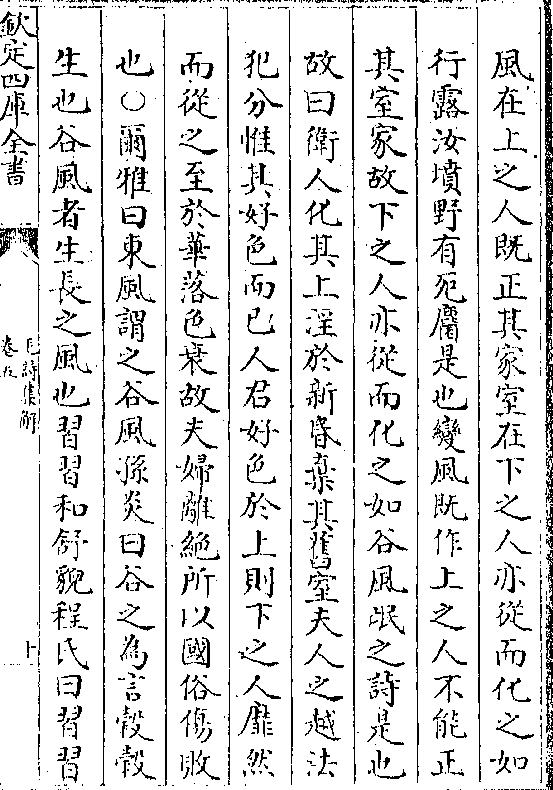 風在上之人既正其家室在下之人亦從而化之如
行露汝墳野有死麕是也變風既作上之人不能正
其室家故下之人亦從而化之如谷風氓之詩是也
故曰衛人化其上淫於新昏棄其舊室夫人之越法
犯分惟其好色而已人君好色於上則下之人靡然
而從之至於華落色衰故夫婦離絕所以國俗傷敗
也○爾雅曰東風謂之谷風孫炎曰谷之為言穀穀
生也谷風者生長之風也習習和舒貌程氏曰習習
欽定四庫全書
毛詩集解
卷五
十